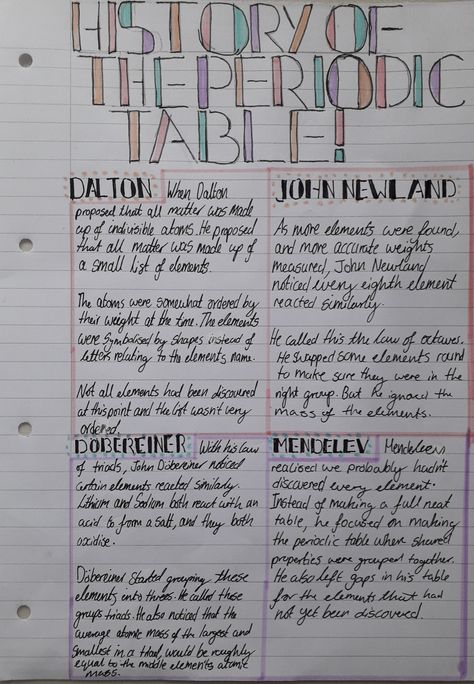 HISTORY OF
THE PERIODIC
TABLE!
DALTON When Dalton
proposed that all matter was made
up of indivisible atoms. He proposed
that all matter was made up of
a small list of elements.
The atoms were somewhat ordered by
their weight at the time. The elements
were symbolised by shapes instead of
letters relating to the elements name.
Not all elements had been discovered
at this point and the list wasn't very
ordered.
JOHN NEWLAND
As more elements were found,
and more accurate weights
measured, John Newland
noticed every eighth element
reacted similarly.
He called this the law of octaves.
He swapped some elements round
to make sure they were in the
right group. But he ignored the
mass of the elements.
DÖBEREINER With his law
of triads, John Döbeiner noticed
certain elements reacted similarly.
Lithium and Sodium both react with an
acid to form a salt, and they both
oxidise.
Döbereiner started grouping these
elements into threes. He called these
groups triads. He also noticed that the
average atomic mass of the largest and
smallest in a triad, would be roughly
equal to the middle elements atomic
mass.
MENDELEV Mendeleev
realised we probably hadn't
discovered every element.
Instead of making a full neat
table, he focused on making
the periodic table where shared
properties were grouped together.
He also left gaps in his table
for the elements that had
not yet been discovered.